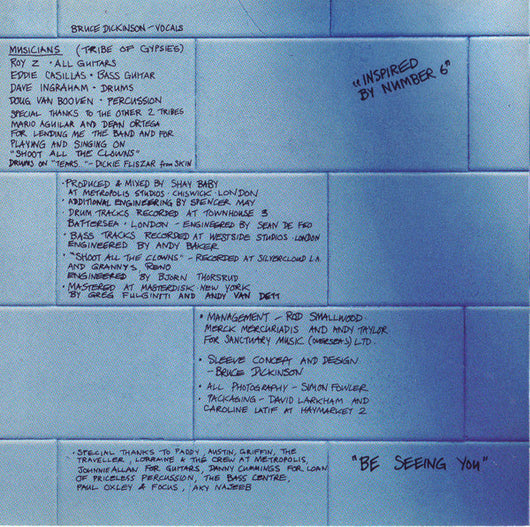 BRUCE DICKINSON - VOCALS
MUSICIANS (-TRIBE OF GYPSIES)
ROY Z · ALL GUITARS
EDDIE CASILLAS · BASS GUITAR
DAVE INGRAHAM · DRUMS
DOUG VAN BOOVEN · PERCUSSION
SPECIAL THANKS TO THE OTHER 2 TRIBES
MARIO AGUILAR AND DEAN ORTEGA
FOR LENDING ME THE BAND AND FOR
PLAYING AND SINGING ON
"SHOOT ALL THE CLOWNS"
DRUMS ON "TEARS.." - DICKIE FLISZAR from SKIN
"INSPIRED
BY NUMBER 6"
· PRODUCED & MIXED BY SHAY BABY
AT METROPOLIS STUDIOS · CHISWICK · LONDON
· ADDITIONAL ENGINEERING BY SPENCER MAY
· DRUM TRACKS RECORDED AT TOWNHOUSE 3
BATTERSEA · LONDON - ENGINEERED BY SEAN DE FEO
· BASS TRACKS RECORDED AT WESTSIDE STUDIOS · LONDON
ENGINEERED BY ANDY BAKER
· "SHOOT ALL THE CLOWNS" - RECORDED AT SILVERCLOUD L.A.
AND GRANNY'S RENO
ENGINEERED BY BJORN THORSRUD
· MASTERED AT MASTERDISK · NEW YORK
BY GREG FULGINITI AND ANDY VAN DETT
· MANAGEMENT - ROD SMALLWOOD
MERCK MERCURIADIS AND ANDY TAYLOR
FOR SANCTUARY MUSIC (OVERSEAS) LTD.
· SLEEVE CONCEPT AND DESIGN
- BRUCE DICKINSON
· ALL PHOTOGRAPHY - SIMON FOWLER
· PACKAGING - DAVID LARKHAM AND
CAROLINE LATIF AT HAYMARKET 2
· SPECIAL THANKS TO PADDY, AUSTIN, GRIFFIN, THE
TRAVELLER, LORRAINE & THE CREW AT METROPOLIS,
JOHNNIE ALLAN FOR GUITARS, DANNY CUMMINGS FOR LOAN
OF PRICELESS PERCUSSION, THE BASS CENTRE,
PAUL OXLEY & FOCUS, AKY NAJEEB
"BE SEEING YOU"